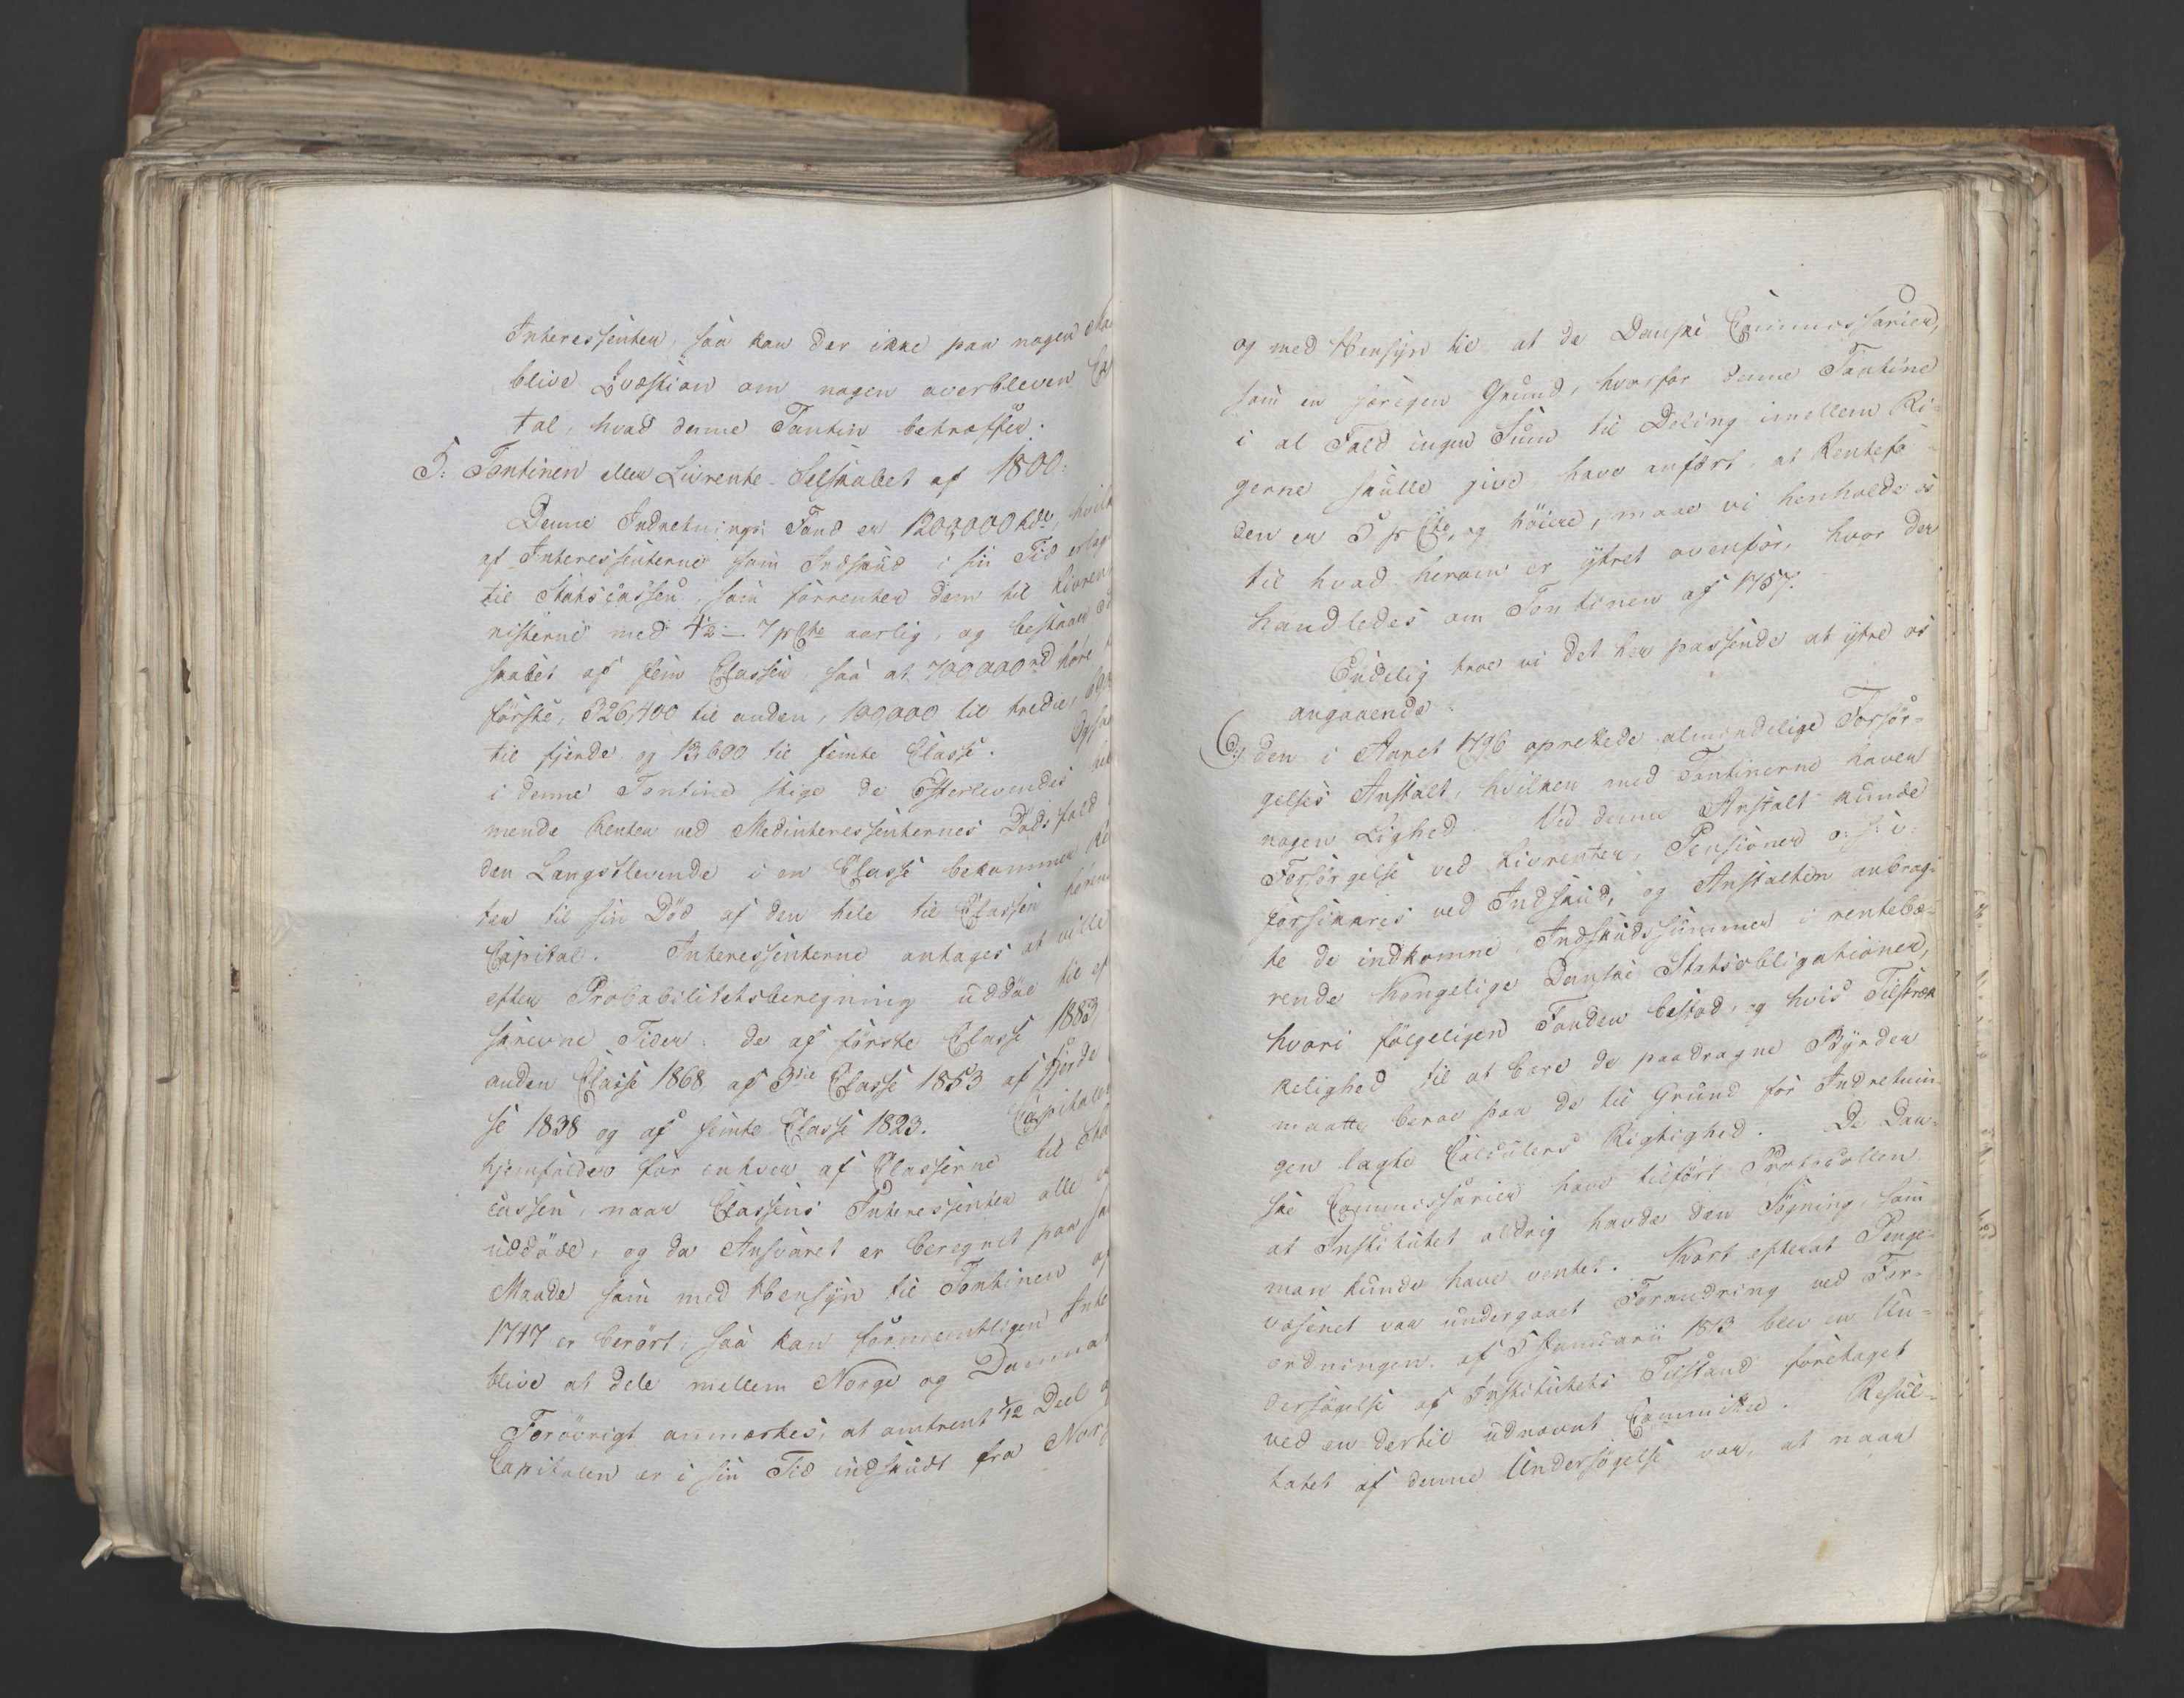 Interessenter, saa kan der ikke paa nogen
blive Qvæstion om nogen overbleven
tal, hvad denne Tontin betræffer.
5: Tontinen eller Livrente-Selskabet af 1800:
Denne Indretnings Fond er 1200,000 Rdr,
af Interessenterne som Indskud i sin Tid
til Statscassen, som forrenter dem til
nisterne med 4½ - 7 prCto aarlig, og bestaaer
skabet af fem Classer, saa at 700000 rd høre
første, 326,400 til anden, 100,000 til tredie,
til fjerde og 13,600 til femte Classe.
i denne Tontine stige de Efterlevendes
mende Renter ved Medinteressenternes Dødsfald
den Længstlevende i en Classe bekommer
ter til sin Død af den hele til Classen
Capital. Interessenterne antages at ville
efter Probabilitetsberegning uddøe til
skrevne Tider: de af første Classe 1883
anden Classe 1868 af 3die Classe 1853 af fjerde
se 1838 og af femte Classe 1823. Capitalen
hjemfalder for enhver af Classerne til
cassen, naar Classens Interessenter alle
uddøde, og da Ansvaret er beregnet paa
Maade som med Hensyn til Tontinen
1747 er berørt, saa kan formeentligen
blive at dele mellem Norge og
Forøvrigt anmærkes, at omtrent 1/12 Deel
Capitalen er i sin Tid indskudt fra
og med Hensyn til at de Danske Commissarier,
som en særegen Grund, hvorfor denne Tontine
i al Fald ingen Sum til Deling imellem Ri-
gerne skulle give, have anført, at Rentefo-
den er 5 prCto, og høiere, maae vi henholde os
til hvad herom er yttret ovenfor, hvor der
handledes om Tontinen af 1757.
Endelig troe vi det her passende at yttre os
angaaende.
6:) den i Aaret 1796 oprettede almindelige Forsør-
gelses Anstalt, hvilken med Tontinerne haver
nogen Lighed. Ved denne Anstalt kunde
Forsørgelse ved Livrenter, Pensioner o: s: v:
forsikkres ved Indskud, og Anstalten anbrag-
te de indkomne Indskudssummer i rentebæ-
rende Kongelige Danske Statsobligationer,
hvori følgeligen Fonden bestod, og hvis Tilstræk
kelighed til at bære de paadragne Byrder
maatte beroe paa de til Grund for Indretnin-
gen lagte Calculers Rigtighed. De Dan-
ske Commissarier have tilført Protocollen
at Institutet aldrig havde den Søgning, som
man kunde have ventet. Kort efterat Penge-
væsenet var undergaaet Forandring ved For-
ordningen af 5 Januarii 1813 blev en Un-
dersøgelse af Institutets Tilstand foretaget
ved en dertil udnævnt Committee. Resul-
tatet af denne Undersøgelse var, at naar